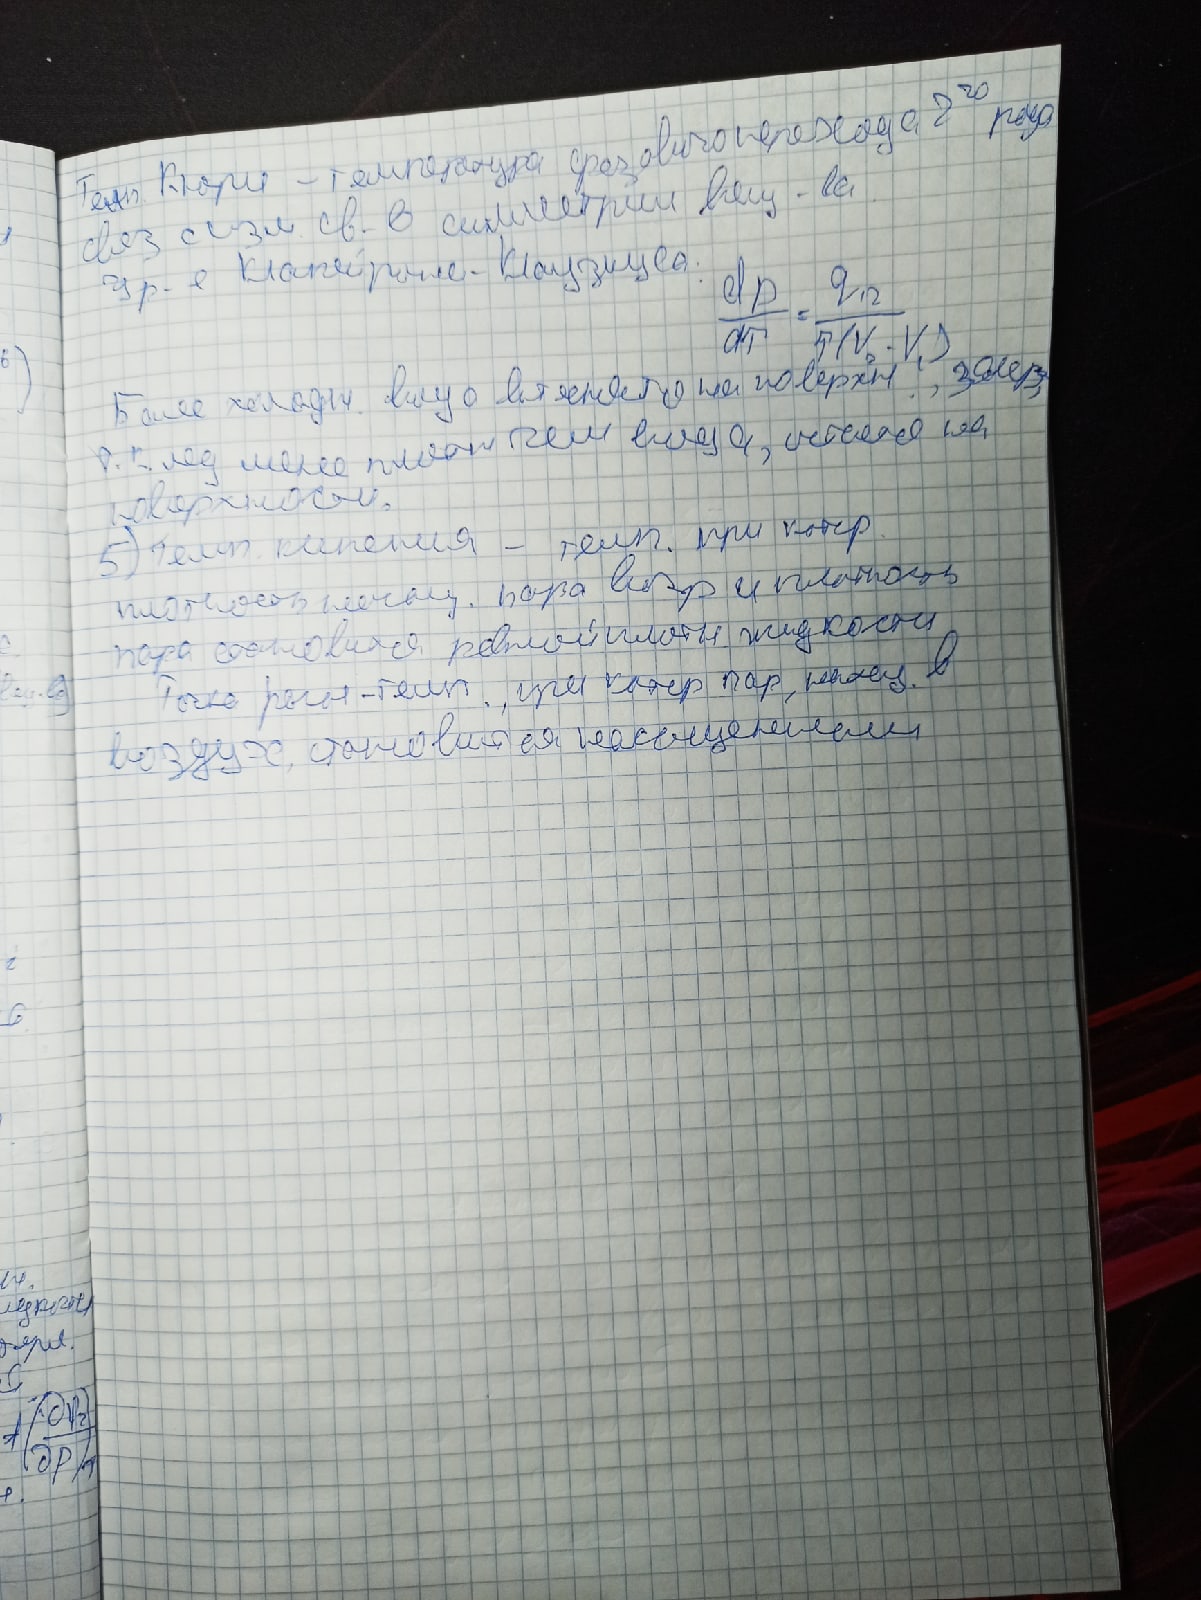 Темп. Кюри - температура фазового перехода 2го рода
связ с изм. св. в симметрии вещ-ва.
Ур-е Клапейрона-Клаузиуса:
dp/dT = q₁₂/T(V₂-V₁)
Более холодн. вода на поверхн., замерз
т.к. лед менее плотн чем вода, остается на
поверхности.
5) Темп. кипения - темп. при котор.
плотность насыщ. пара и плотность
пара становится равной плотн жидкости
Точка росы - темп., при котор пар, наход. в
воздухе, становится насыщенным
(∂V₂/∂p)т